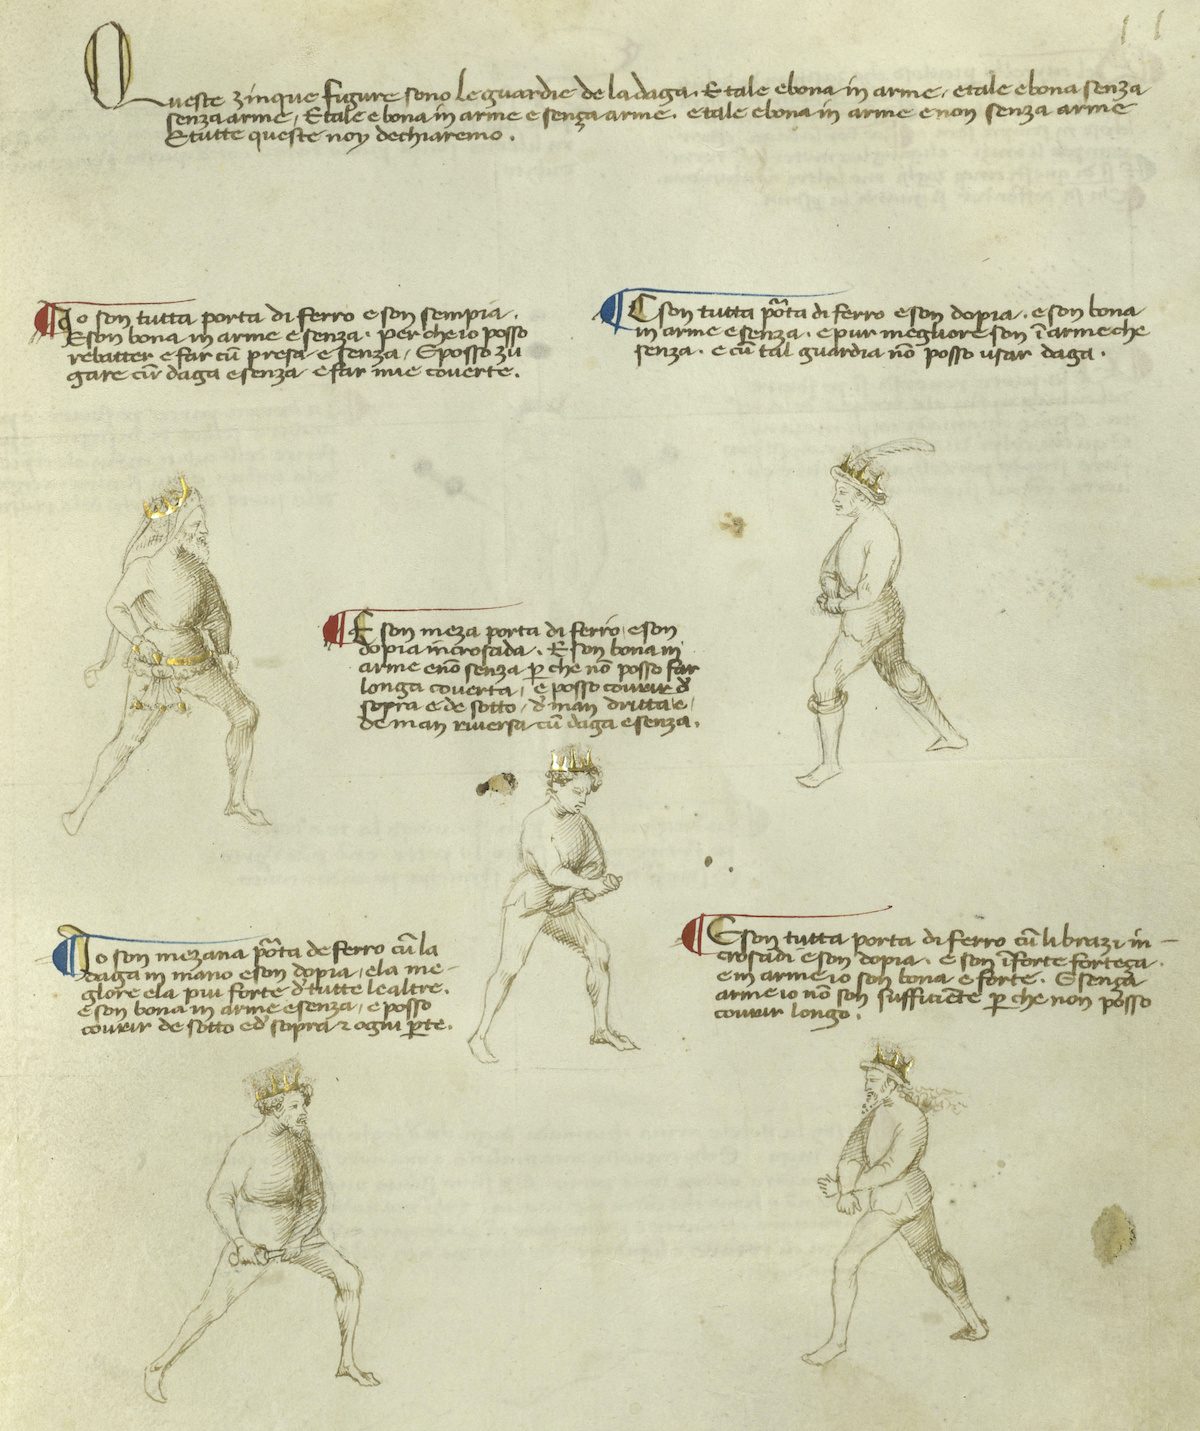 Queste zinque figure sono le guardie de la daga. E tale e bona in arme, e tale e bona senza
senza arme, E tale e bona in arme e senza arme. e tale e bona in arme e non senza arme
E tutte queste noy dechiaremo.
Io son tutta porta di ferro e son sempia.
E son bona in arme e senza. per che io posso
rebatter e far cū presa e senza, E posso zu
gare cū daga e senza e far mie coverte.
E son tutta pōta di ferro e son dopia. e son bona
in arme e senza. e pur megliore son ī arme che
senza. e cū tal guardia nō posso usar daga.
E son meza porta di ferro, e son
dopia incrosada. E son bona in
arme e nō senza p̱ che nō posso far
longa coverta, e posso covrir d̄
sopra e de sotto, d̄ man dritta e,
de man riversa cū daga e senza.
Io son mezana pōta de ferro cū la
daga in mano e son dopia, e la me-
glore e la piu forte d̄ tutte le altre.
E son bona in arme e senza, e posso
covrir de sotto e d̄ sopra ⁊ ogni p̱te.
E son tutta porta di ferro cū li brazi in
crosadi e son dopia. e son ī forte forteça.
e in arme io son bona e forte. E sença
arme io nō son sufficiēte p̱ che non posso
covrir longo.